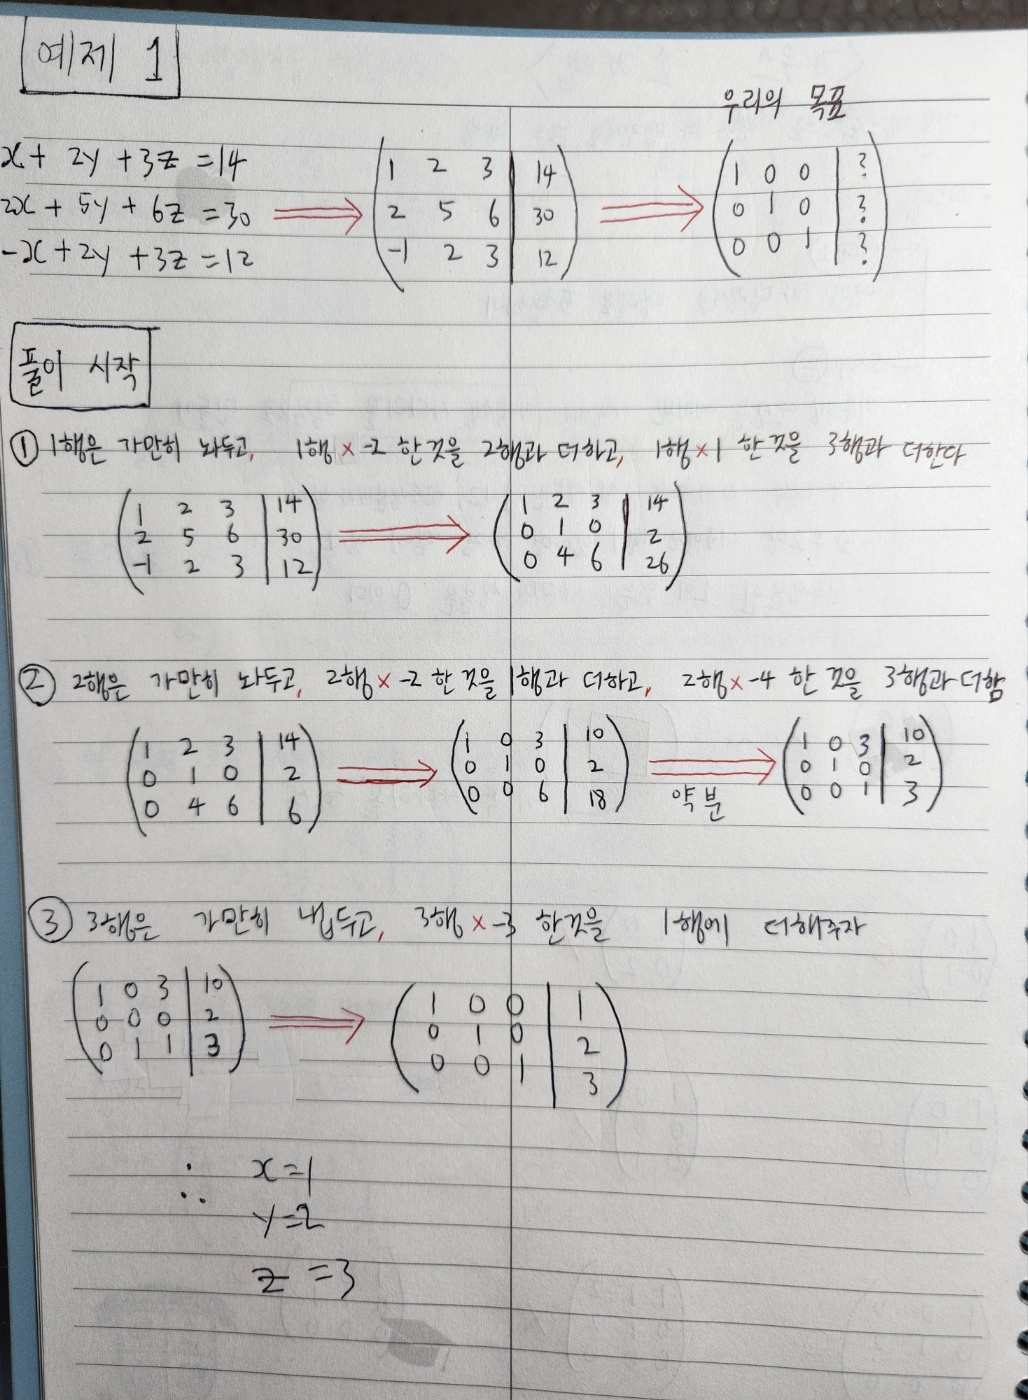 예제 1
우리의 목표
x + 2y + 3z = 14
2x + 5y + 6z = 30
-x + 2y + 3z = 12
1 2 3 | 14
2 5 6 | 30
-1 2 3 | 12
1 0 0 | ?
0 1 0 | ?
0 0 1 | ?
풀이 시작
① 1행은 가만히 놔두고, 1행 × -2 한 것을 2행과 더하고, 1행 × 1 한 것을 3행과 더한다
1 2 3 | 14
2 5 6 | 30
-1 2 3 | 12
1 2 3 | 14
0 1 0 | 2
0 4 6 | 26
② 2행은 가만히 놔두고, 2행 × -2 한 것을 1행과 더하고, 2행 × -4 한 것을 3행과 더함
1 2 3 | 14
0 1 0 | 2
0 4 6 | 6
1 0 3 | 10
0 1 0 | 2
0 0 6 | 18
약분
1 0 3 | 10
0 1 0 | 2
0 0 1 | 3
③ 3행은 가만히 냅두고, 3행 × -3 한것을 1행에 더해주자
1 0 3 | 10
0 0 0 | 2
0 1 1 | 3
1 0 0 | 1
0 1 0 | 2
0 0 1 | 3
∴ x = 1
y = 2
z = 3